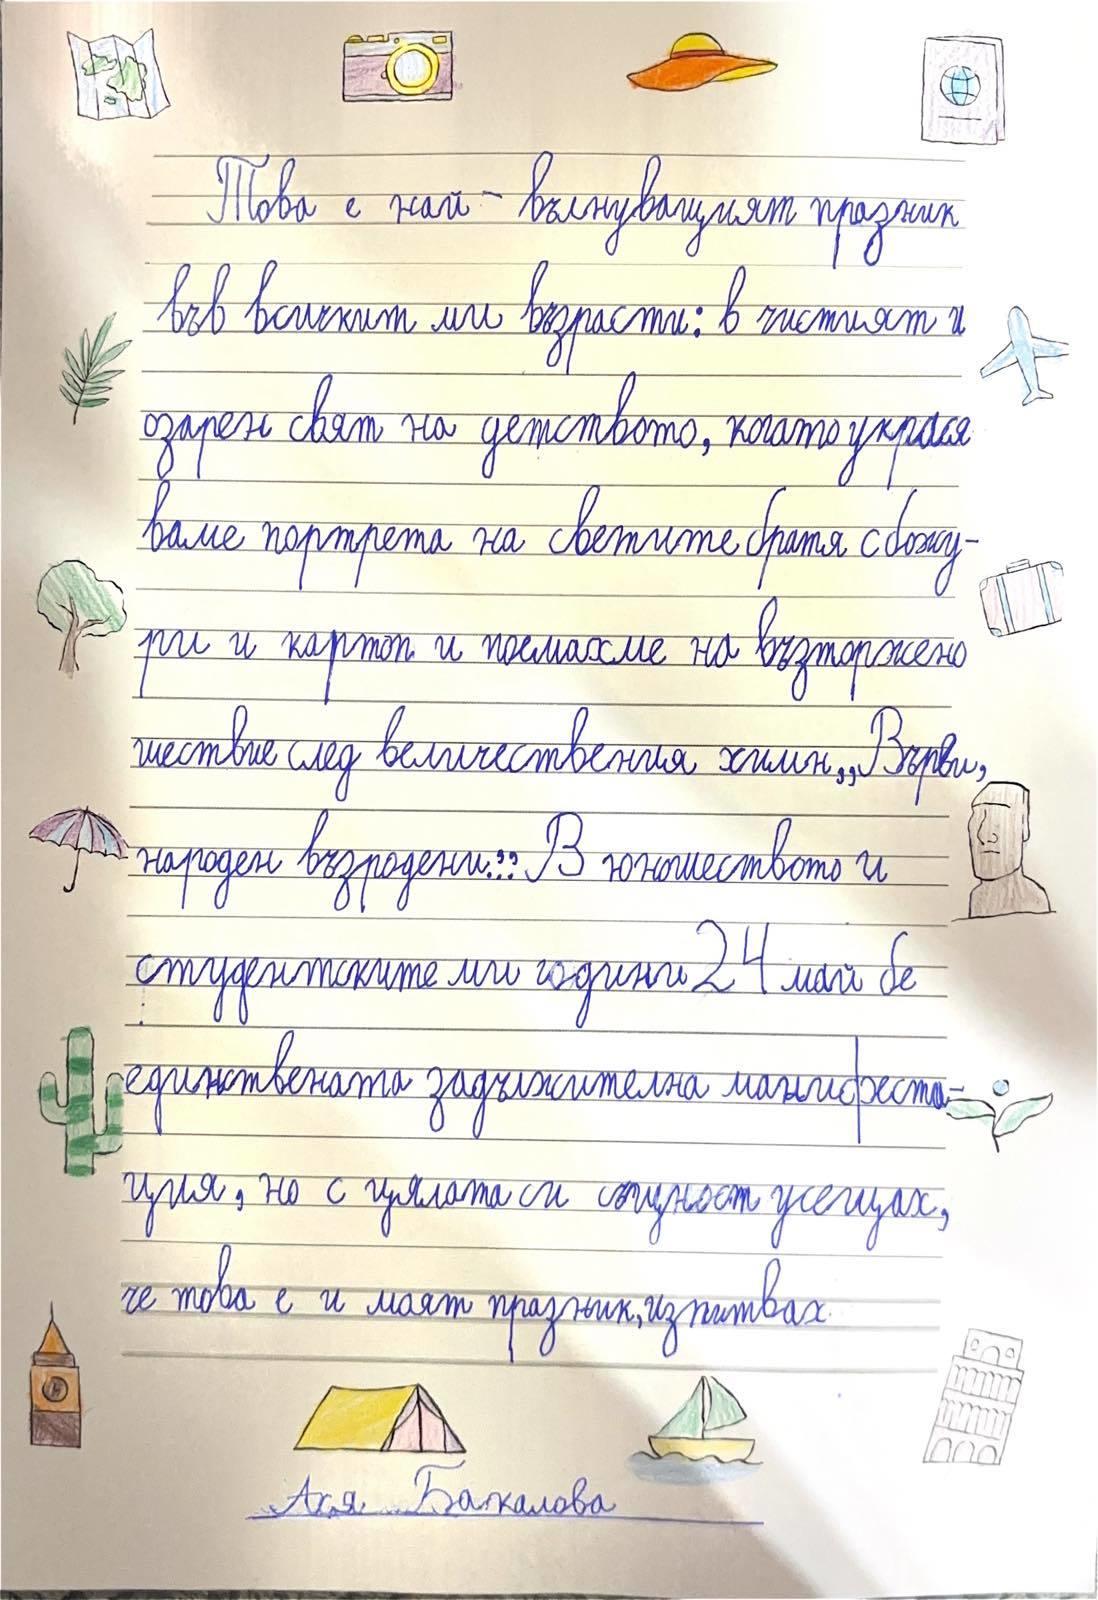 Това е най - вълнуващият празник
във всичкит ми възрасти: в чистият и
озарен свят на детството, когато украся
ваме портрета на светите братя с божу-
ри и картоп и поемахме на възторжено
шествие след величествения химн,,Върви,
народен възродени:" В юношеството и
студентските ми години 24 май бе
единствената задължителна манифеста-
ция, но с цялата си същност усещах,
че това е и моят празник, изпитвах
Ася Бакалова